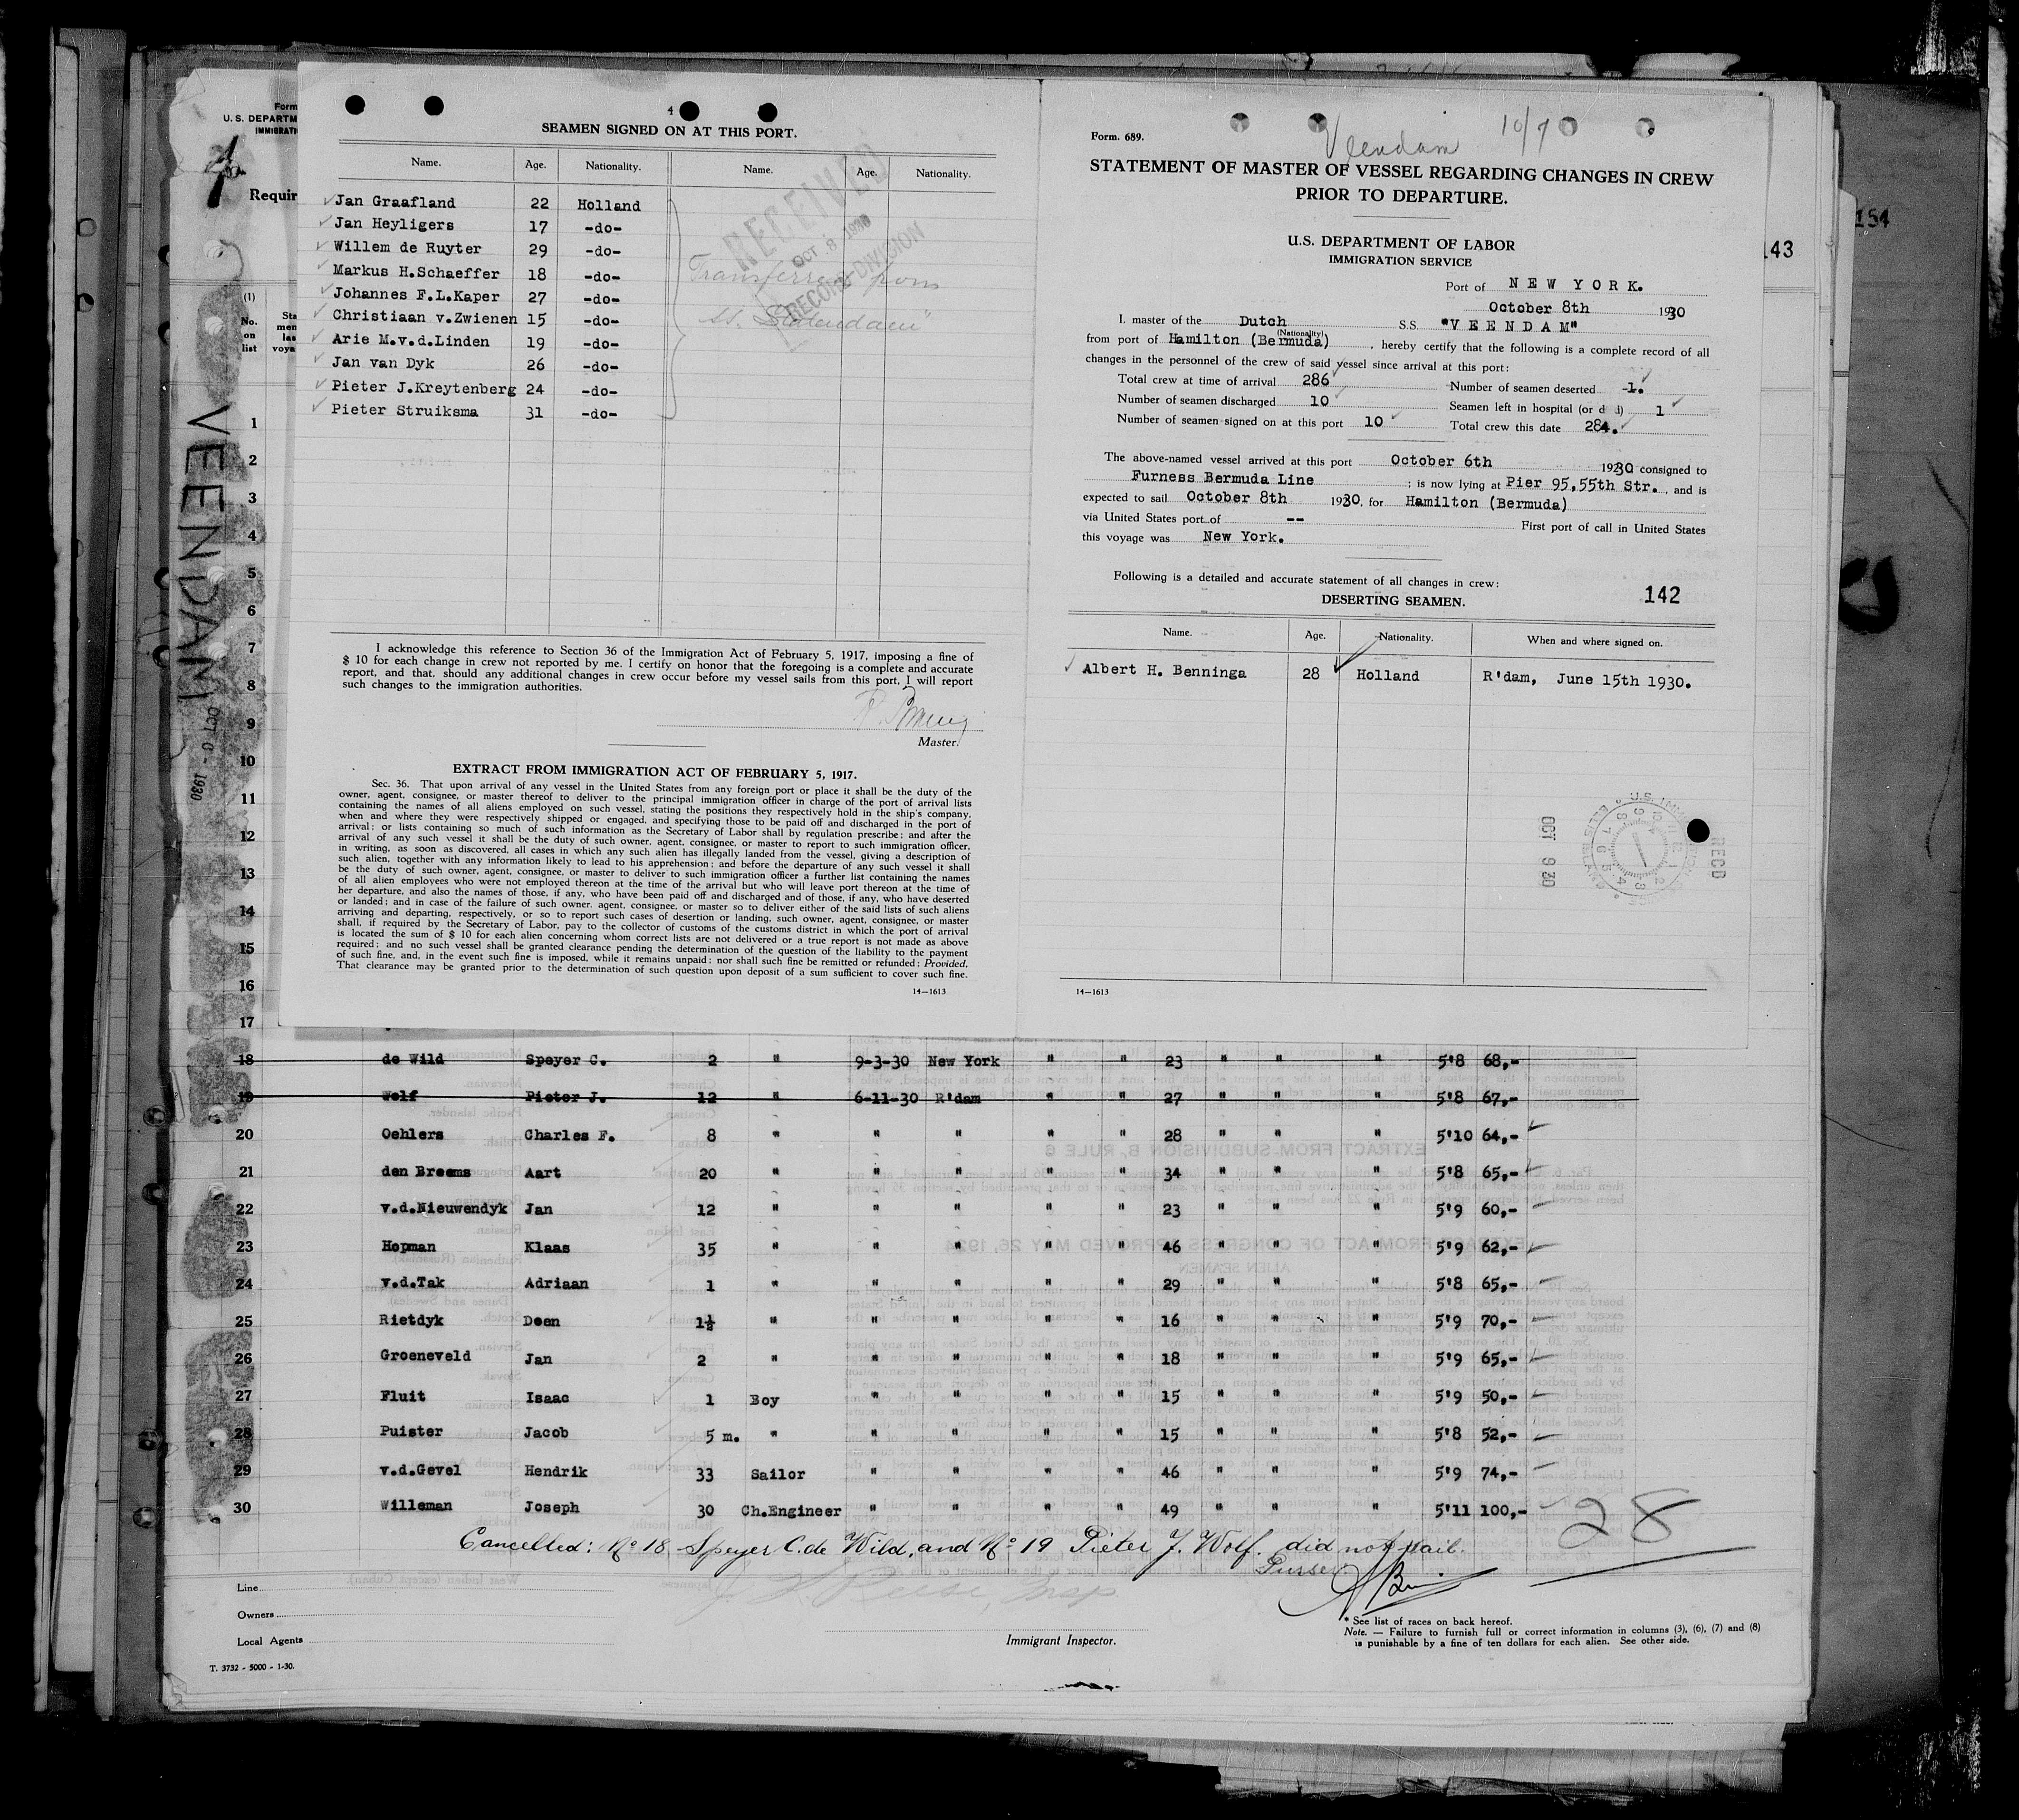 154
143
Form
U.S. DEPARTM
IMMIGRATI
Requir
(1)
No.
on
list
Sta
men
las
voya
VEENDAM
1930
4
SEAMEN SIGNED ON AT THIS PORT.
Name. Age. Nationality. Name. Age. Nationality.
Jan Graafland 22 Holland
Jan Heyligers 17 -do-
Willem de Ruyter 29 -do-
Markus H.Schaeffer 18 -do-
Johannes F.L.Kaper 27 -do-
Christiaan v.Zwienen 15 -do-
Arie M.v.d.Linden 19 -do-
Jan van Dyk 26 -do-
Pieter J.Kreytenberg 24 -do-
Pieter Struiksma 31 -do-
RECEIVED
OCT 8 1930
RECORD DIVISION
Transferred from
ss. "Statendam"
I acknowledge this reference to Section 36 of the Immigration Act of February 5, 1917, imposing a fine of
$ 10 for each change in crew not reported by me. I certify on honor that the foregoing is a complete and accurate
report, and that, should any additional changes in crew occur before my vessel sails from this port, I will report
such changes to the immigration authorities.
Master.
EXTRACT FROM IMMIGRATION ACT OF FEBRUARY 5, 1917.
Sec. 36. That upon arrival of any vessel in the United States from any foreign port or place it shall be the duty of the
owner, agent, consignee, or master thereof to deliver to the principal immigration officer in charge of the port of arrival lists
containing the names of all aliens employed on such vessel, stating the positions they respectively hold in the ship's company,
when and where they were respectively shipped or engaged, and specifying those to be paid off and discharged in the port of
arrival; or lists containing so much of such information as the Secretary of Labor shall by regulation prescribe; and after the
arrival of any such vessel it shall be the duty of such owner, agent, consignee, or master to report to such immigration officer,
in writing, as soon as discovered, all cases in which any such alien has illegally landed from the vessel, giving a description of
such alien, together with any information likely to lead to his apprehension; and before the departure of any such vessel it shall
be the duty of such owner, agent, consignee, or master to deliver to such immigration officer a further list containing the names
of all alien employees who were not employed thereon at the time of the arrival but who will leave port thereon at the time of
her departure, and also the names of those, if any, who have been paid off and discharged and of those, if any, who have deserted
or landed; and in case of the failure of such owner, agent, consignee, or master so to deliver either of the said lists of such aliens
arriving and departing, respectively, or so to report such cases of desertion or landing, such owner, agent, consignee, or master
shall, if required by the Secretary of Labor, pay to the collector of customs of the customs district in which the port of arrival
is located the sum of $ 10 for each alien concerning whom correct lists are not delivered or a true report is not made as above
required; and no such vessel shall be granted clearance pending the determination of the question of the liability to the payment
of such fine, and, in the event such fine is imposed, while it remains unpaid; nor shall such fine be remitted or refunded; Provided,
That clearance may be granted prior to the determination of such question upon deposit of a sum sufficient to cover such fine.
14—1613
Form. 689.
Veendam 10/7
STATEMENT OF MASTER OF VESSEL REGARDING CHANGES IN CREW
PRIOR TO DEPARTURE.
U.S. DEPARTMENT OF LABOR
IMMIGRATION SERVICE
Port of NEW YORK.
October 8th 1930
I, master of the Dutch S.S. "VEENDAM"
(Nationality)
from port of Hamilton (Bermuda), hereby certify that the following is a complete record of all
changes in the personnel of the crew of said vessel since arrival at this port:
Total crew at time of arrival 286 Number of seamen deserted -1.
Number of seamen discharged 10 Seamen left in hospital (or d d) 1
Number of seamen signed on at this port 10 Total crew this date 284.
The above-named vessel arrived at this port October 6th 1930 consigned to
Furness Bermuda Line ; is now lying at Pier 95,55th Str., and is
expected to sail October 8th 1930, for Hamilton (Bermuda)
via United States port of -- First port of call in United States
this voyage was New York.
Following is a detailed and accurate statement of all changes in crew:
DESERTING SEAMEN. 142
Name. Age. Nationality. When and where signed on.
Albert H. Benninga 28 Holland R'dam, June 15th 1930.
OCT 9 30
RECD
14—1613
1
2
3
4
5
6
7
8
9
10
11
12
13
14
15
16
17
18 de Wild Speyer C. 2 " 9-3-30 New York " " 23 " " " 5'8 68,-
19 Wolf Pieter J. 12 " 6-11-30 R'dam " " 27 " " " 5'8 67,-
20 Oehlers Charles F. 8 " " " " " 28 " " " 5'10 64,-
21 den Breems Aart 20 " " " " " 34 " " " 5'8 65,-
22 v.d.Nieuwendyk Jan 12 " " " " " 23 " " " 5'9 60,-
23 Hopman Klaas 35 " " " " " 46 " " " 5'9 62,-
24 v.d.Tak Adriaan 1 " " " " " 29 " " " 5'8 65,-
25 Rietdyk Deen 1½ " " " " " 16 " " " 5'9 70,-
26 Groeneveld Jan 2 " " " " " 18 " " " 5'9 65,-
27 Fluit Isaac 1 Boy " " " " 15 " " " 5'9 50,-
28 Puister Jacob 5 m. " " " " " 15 " " " 5'8 52,-
29 v.d.Gevel Hendrik 33 Sailor " " " " 46 " " " 5'9 74,-
30 Willeman Joseph 30 Ch.Engineer " " " " 49 " " " 5'11 100,-
28
Cancelled: No 18 Speyer C. de Wild, and No 19 Pieter J. Wolf. did not sail.
Purser
Line
Owners
Local Agents
Immigrant Inspector.
* See list of races on back hereof.
Note. — Failure to furnish full or correct information in columns (3), (6), (7) and (8)
is punishable by a fine of ten dollars for each alien. See other side.
T. 3732 - 5000 - 1-30.